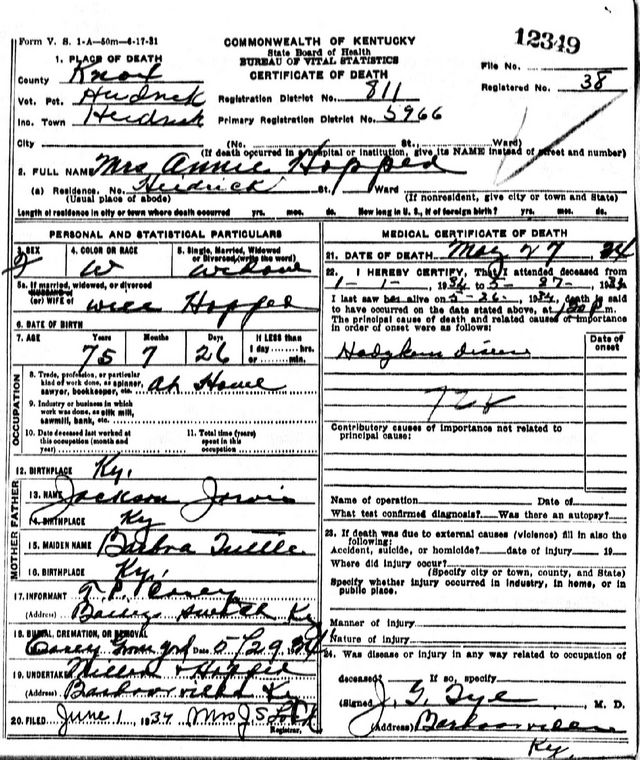 Form V. S. 1-A—50m—6-17-31
12349
COMMONWEALTH OF KENTUCKY
State Board of Health
BUREAU OF VITAL STATISTICS
CERTIFICATE OF DEATH
1. PLACE OF DEATH
County Knox
Vot. Pct. Heidrick
Inc. Town Heidrick
City
Registration District No. 811
Primary Registration District No. 5966
File No.
Registered No. 38
(No. St., Ward)
(If death occurred in a hospital or institution, give its NAME instead of street and number)
2. FULL NAME Mrs Annie Hopper
(a) Residence. No. Heidrick St., Ward
(Usual place of abode) (If nonresident, give city or town and State)
Length of residence in city or town where death occurred yrs. mos. ds. How long in U. S., if of foreign birth? yrs. mos. ds.
PERSONAL AND STATISTICAL PARTICULARS
3. SEX 4. COLOR OR RACE W 5. Single, Married, Widowed or Divorced (write the word) Widow
5a. If married, widowed, or divorced
(or) WIFE of Will Hopper
6. DATE OF BIRTH
7. AGE Years 75 Months 7 Days 26 If LESS than 1 day hrs. or min.
OCCUPATION
8. Trade, profession, or particular kind of work done, as spinner, sawyer, bookkeeper, etc. At Home
9. Industry or business in which work was done, as silk mill, sawmill, bank, etc.
10. Date deceased last worked at this occupation (month and year)
11. Total time (years) spent in this occupation
12. BIRTHPLACE Ky.
FATHER
13. NAME Jackson Jarvis
14. BIRTHPLACE Ky
MOTHER
15. MAIDEN NAME Barbra Tuttle
16. BIRTHPLACE Ky,
17. INFORMANT T. P. Casey
(Address) Baileys Switch Ky
18. BURIAL, CREMATION, OR REMOVAL
Casey Date 5/29, 1934
19. UNDERTAKER Hopper
(Address) Barbourville Ky
20. FILED June 1, 1934 Mrs J S Lock
Registrar.
MEDICAL CERTIFICATE OF DEATH
21. DATE OF DEATH May 27 34
22. I HEREBY CERTIFY, That I attended deceased from
1-1-, 1934 to 5-27-, 1934
I last saw her alive on 5-26-, 1934, death is said
to have occurred on the date stated above, at m.
The principal cause of death and related causes of importance in order of onset were as follows:
Date of onset
Hodgkens disease
Contributory causes of importance not related to principal cause:
Name of operation Date of
What test confirmed diagnosis? Was there an autopsy?
23. If death was due to external causes (violence) fill in also the following:
Accident, suicide, or homicide? date of injury 19
Where did injury occur?
(Specify city or town, county, and State)
Specify whether injury occurred in industry, in home, or in public place.
Manner of injury
Nature of injury
24. Was disease or injury in any way related to occupation of
deceased? If so, specify
(Signed J. G. Tye M. D.
(Address) Barbourville
Ky.